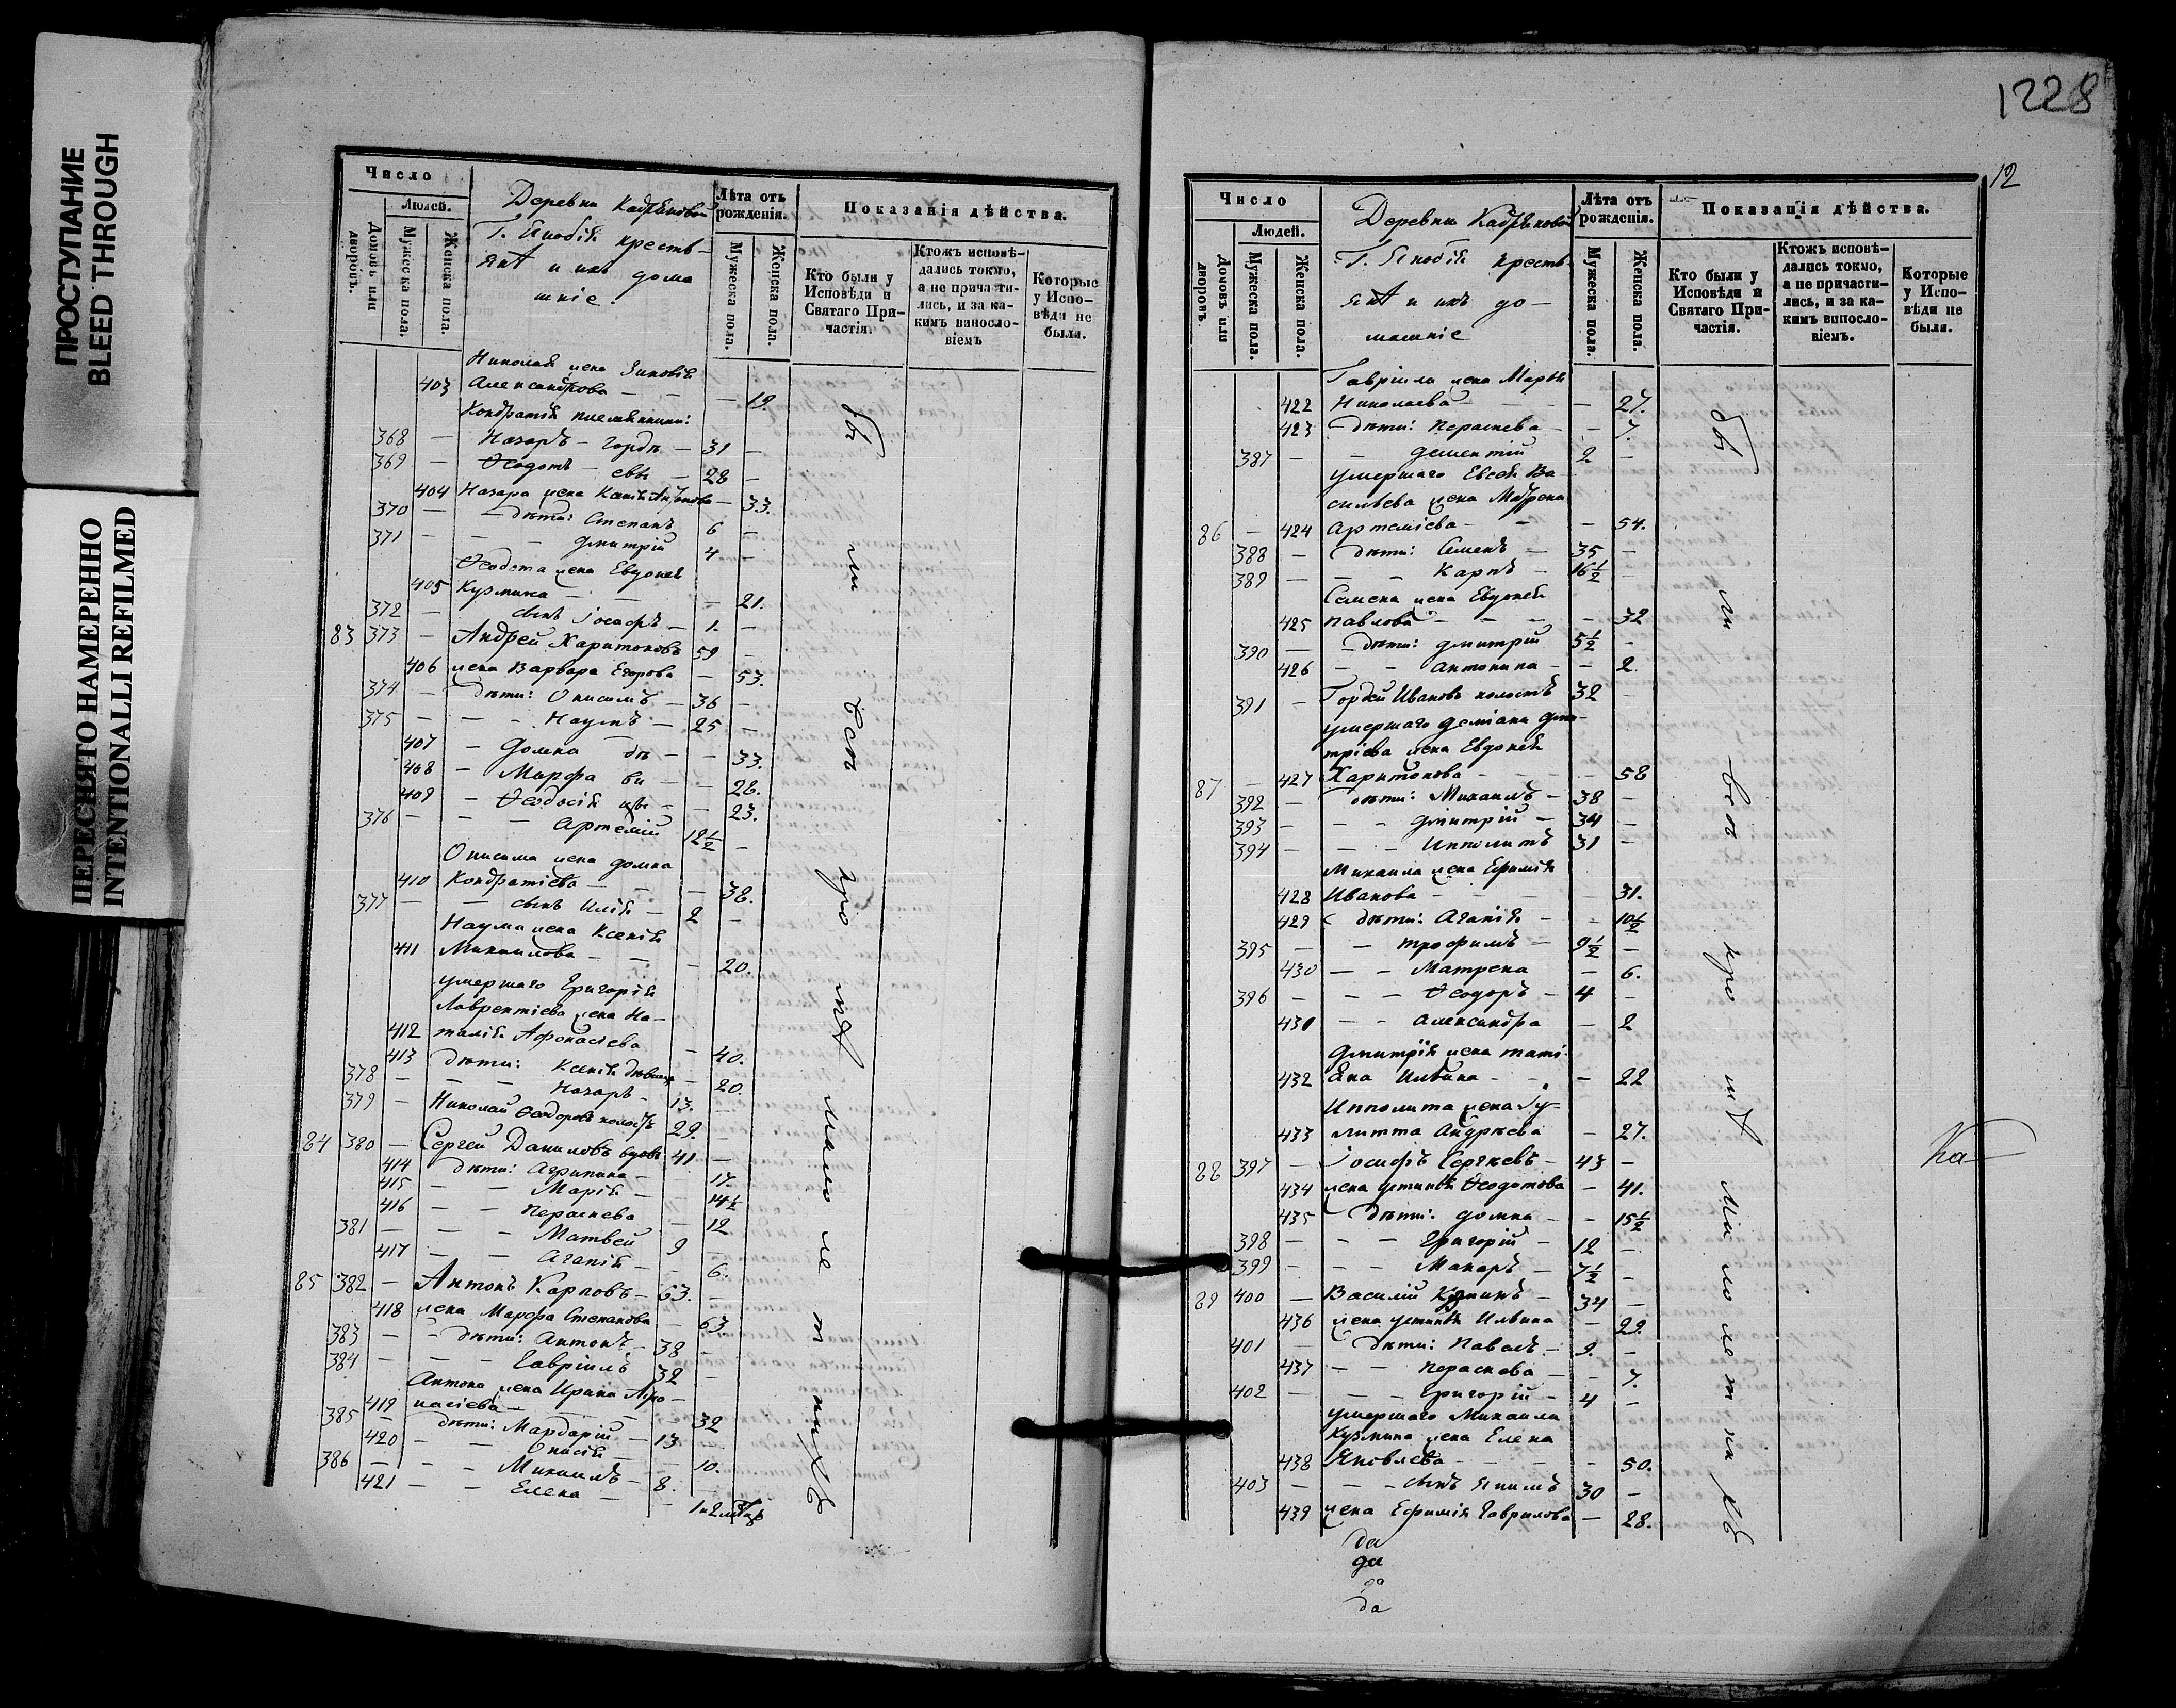 ПРОСТУПАНИЕ
BLEED THROUGH
ПЕРЕСНЯТО НАМЕРЕННО
INTENTIONALLI REFILMED
Число
Людей.
Домовъ или дворовъ.
Мужеска пола.
Женска пола.
Деревни
Г. крестья-
янъ и ихъ дома
шніе.
Лѣта отъ рожденія.
Мужеска пола.
Женска пола.
Показанія дѣйства.
Кто были у Исповѣди и Святаго Причастія.
Ктожъ исповѣдались токмо, а не причастились, и за какимъ винословіемъ
Которые у Исповѣди не были.
Николая жена Зиновія
403 Александрова — — — 19.
Кондратія племянники:
368 — Назаръ — Гордѣ — 31 —
369 — Ѳеодотъ — евы — 28 —
404 Назара жена — 33.
370 — — дѣти: Степанъ 6 —
371 — — — Дмитрій 4 —
Ѳеодота жена Евдокія
405 Кузмина — — — 21.
372 — сынъ Іосифъ — 1. —
83 373 — Андрей Харитоновъ 59 —
406 жена Варвара Егорова — 53.
374 — дѣти: Онисимъ — 36 —
375 — — — Наумъ — 25 —
407 — Домна дѣ — — 33.
408 — Марфа ви — — 28.
409 — Ѳеодосія цы — — 23.
376 — — — Артемій 12½ —
Онисима жена Домна
410 Кондратіева — — — 38.
377 — — сынъ Илія — 2 —
Наума жена Ксенія
411 Михаилова — — — 20.
умершаго Григорія
Лаврентіева жена На-
412 талія Афонасіева — 40.
413 дѣти: Ксенія дѣвица — 20.
378 — — — Назаръ — 13. —
379 — Николай Ѳеодоровъ холостъ 29. —
84 380 — Сергей Даниловъ вдовъ 41 —
414 дѣти: Агрипина — — 17.
415 — — Марія — — 14½
416 — — Параскева — 12
381 — — — Матвей 9 —
417 — — Агапія — — 6.
85 382 — Антонъ Карповъ — 63. —
418 жена Марфа Степанова — 63
383 — — дѣти: Антонъ — 38 —
384 — — — Гавріилъ 32 —
Антона жена Ирина Афо-
419 насіева — — — 32
385 — дѣти: Мардарій — 13 —
420 — — Онисія — — 10.
386 — — — Михаилъ — 8. —
421 — — Елена — — 1
бы ли всѣ кро мѣ мало ле т нихъ
1228
12
Число
Людей.
Домовъ или дворовъ.
Мужеска пола.
Женска пола.
Деревни
Г. крестья-
янъ и ихъ до-
машніе
Лѣта отъ рожденія.
Мужеска пола.
Женска пола.
Показанія дѣйства.
Кто были у Исповѣди и Святаго Причастія.
Ктожъ исповѣдались токмо, а не причастились, и за какимъ винословіемъ.
Которые у Исповѣди не были.
Гавріила жена Марія
422 Николаева — — — 27.
423 дѣти: Параскева — — 7.
387 — — Дементій 2 —
умершаго Евсея Ва-
сильева жена Матрена
86 — 424 Артеміева — — — 54.
388 — дѣти: Семенъ — 35 —
389 — — — Карпъ — 16½ —
Семена жена Евдокея
425 Павлова — — — 32
390 — — дѣти: Дмитрій 5½ —
426 — — Антонина — — 2.
391 — Гордей Ивановъ холостъ 32 —
умершаго Деміана Дми-
тріева жена Евдокея
87 — 427 Харитонова — — — 58
392 — дѣти: Михаилъ — 38 —
393 — — — Дмитрій — 34 —
394 — — — Ипполитъ 31 —
Михаила жена Ефимія
428 Иванова — — — 31.
429 дѣти: Агапія — — 10½
395 — — Трофимъ — 9½ —
430 — — Матрена — 6.
396 — — — Ѳеодоръ — 4 —
431 — — Александра — 2
Дмитрія жена Таті-
432 яна Ильина — — — 22
Ипполита жена Іу-
433 литта Андреева — 27.
88 397 — Іосифъ Сергеевъ — 43 —
434 жена Устинья Ѳеодотова — 41.
435 дѣти: Домна — — 15½
398 — — — Григорій — 12 —
399 — — — Макаръ — 7½ —
89 400 — Василій Кузминъ — 34 —
436 жена Устинья Ильина — 29.
401 — дѣти: Павелъ — 9. —
437 — — Параскева — — 7.
402 — — — Григорій — 4 —
умершаго Михаила
Кузмина жена Елена
438 Яковлева — — — 50.
403 — — — сынъ Якимъ 30 —
439 жена Ефимія Гаврилова — 28.
бы ли всѣ кро мѣ ма ло ле т нихъ
да
да
да
да